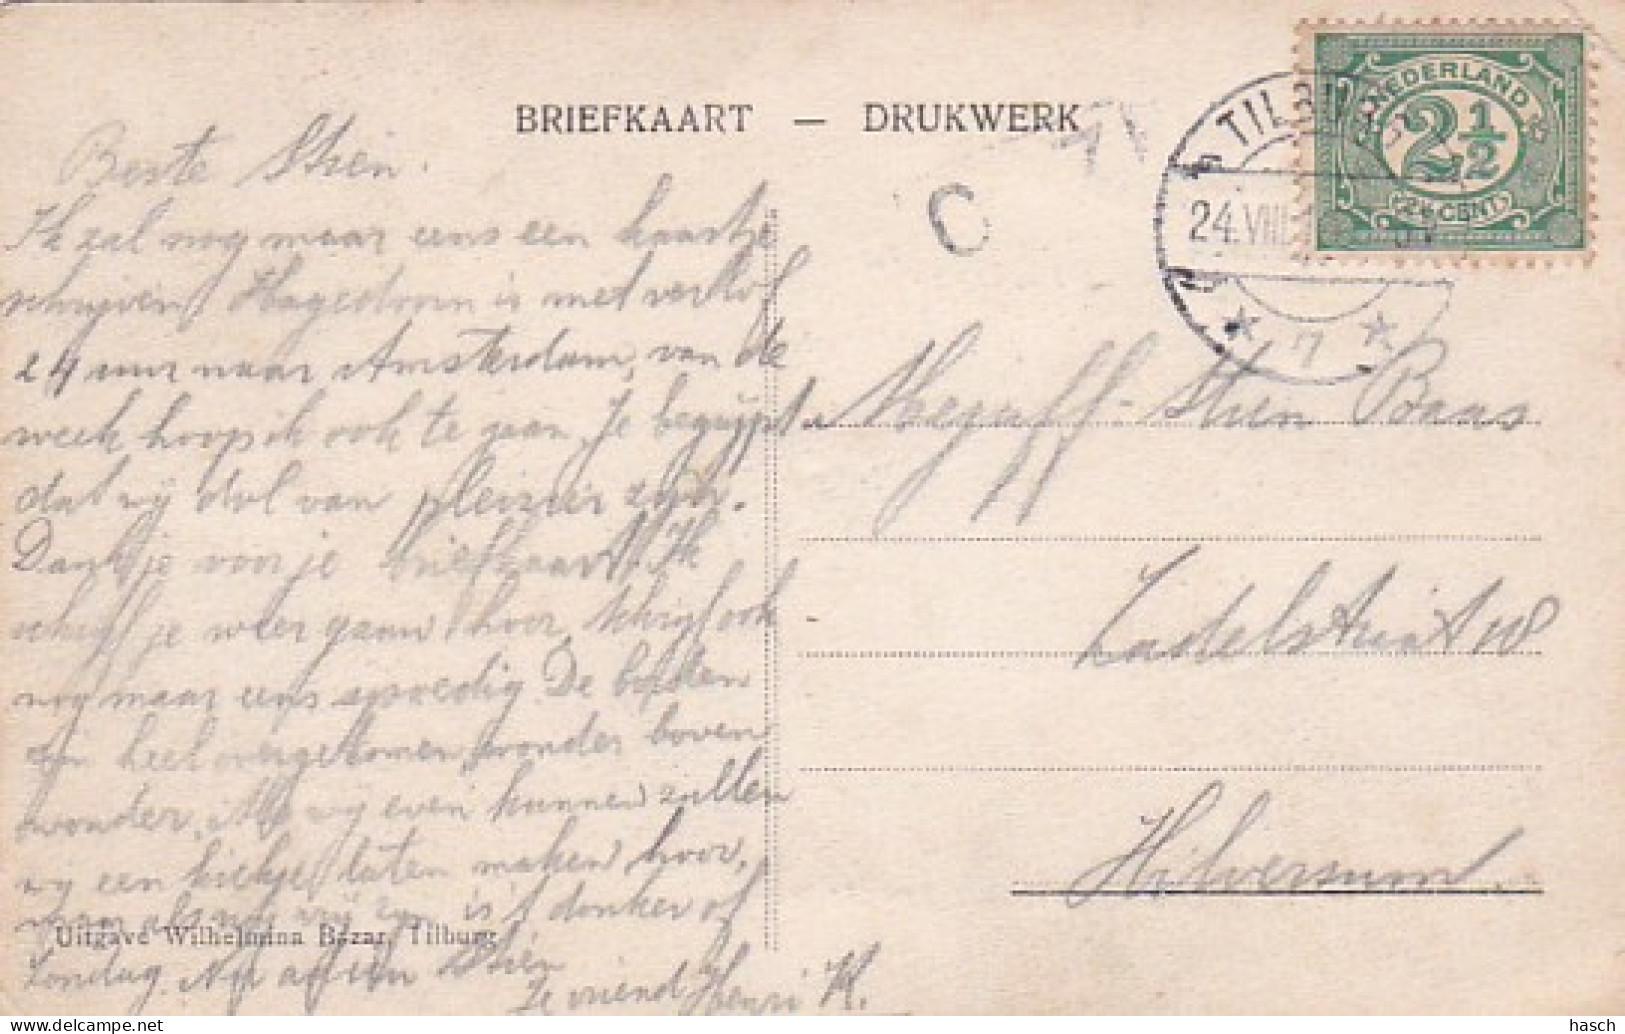 BRIEFKAART — DRUKWERK
NEDERLAND
2½
(2½ CENT)
TILBURG
24.VIII.1
7
C
Beste Stien.
Ik zal nog maar eens een kaartje
schrijven Hagedoorn is met verlof
24 uur naar Amsterdam, van de
week hoop ik ook te gaan, Je begrijpt
dat wij dol van pleizier zijn.
Dank je voor je briefkaart. Ik
schrijf je weer gauw hoor, schrijf ook
nog maar eens spoedig De
zijn heel overgekomen, wonder boven
wonder. Als wij even kunnen zullen
wij een kiekje laten maken hoor,
maar als wij vrij zijn is 't donker of
Zondag. Nu adieu Stien
Je vriend Henri K.
Uitgave Wilhelmina Bazar, Tilburg
Mejuff. Stien Baas
Hilversum.
hasch
delcampe.net